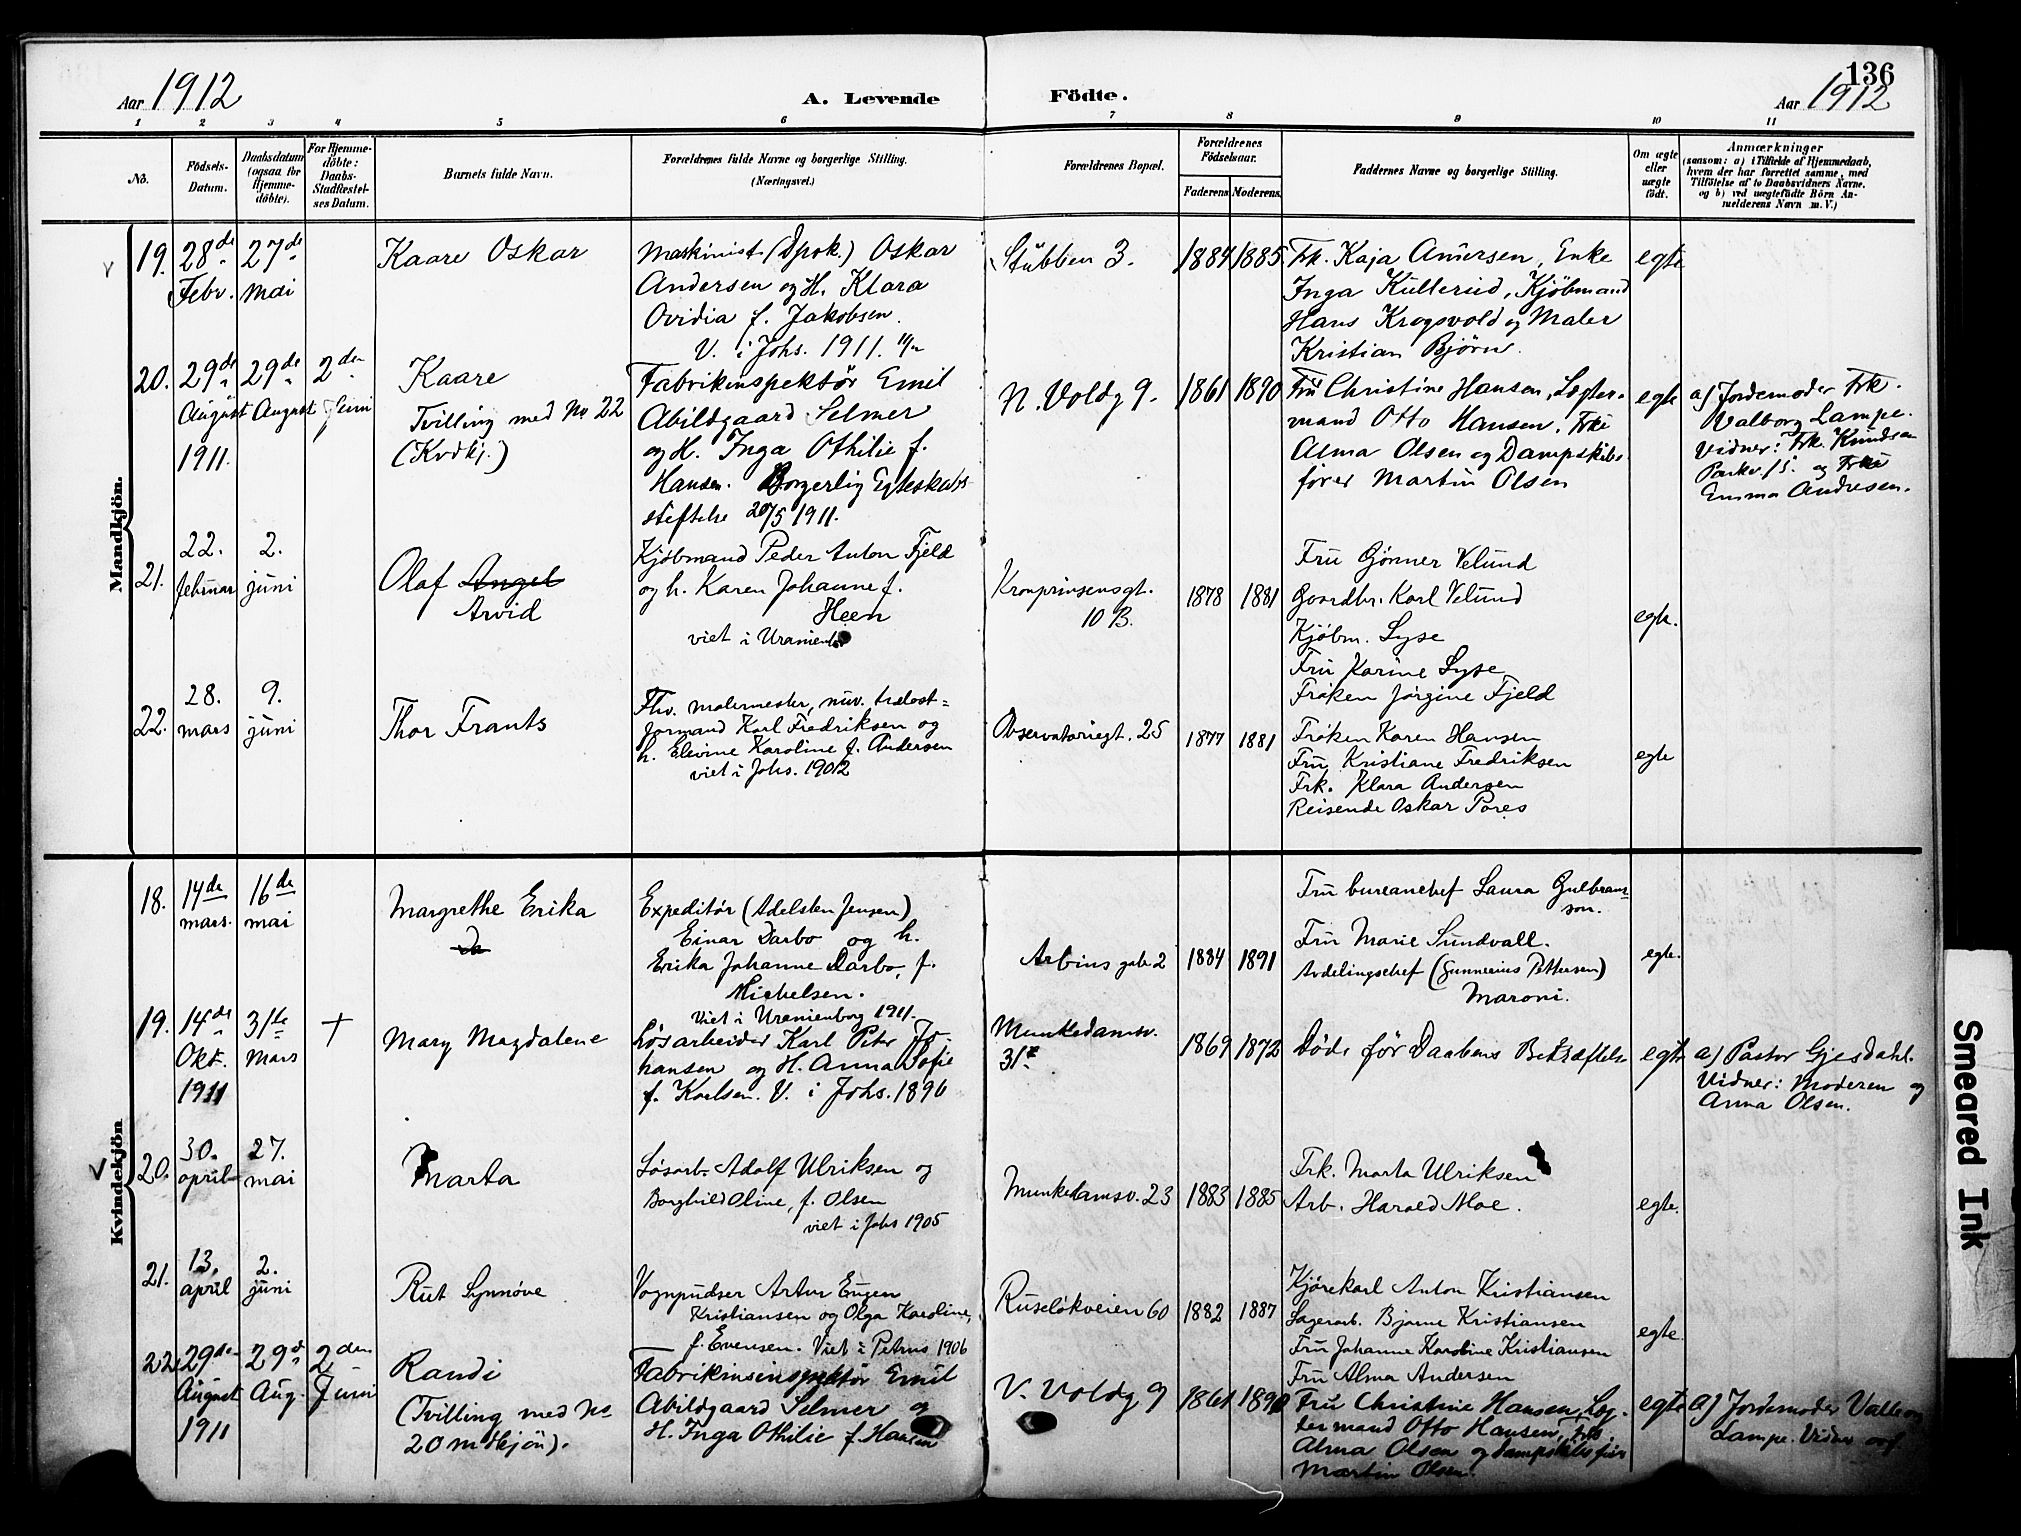 136
Aar 1912
A. Levende Födte.
Aar 1912
1 2 3 4 5 6 7 8 9 10 11
No.
Födsels-Datum.
Daabsdatum (ogsaa for Hjemme-döbte).
For Hjemme-döbte: Daabs-Stadfæstel-ses Datum.
Barnets fulde Navn.
Forældrenes fulde Navne og borgerlige Stilling.
(Næringsvei.)
Forældrenes Bopæl.
Forældrenes Födselsaar.
Faderens Moderens
Faddernes Navne og borgerlige Stilling.
Om ægte eller uægte födt.
Anmærkninger
(saasom: a) i Tilfælde af Hjemmedaab,
hvem der har forrettet samme, med
Tilföielse af to Daabsvidners Navne,
og b) ved uægtefödte Börn An-
melderens Navn m. V.)
Mandkjön.
19. 28de Febr. 27de Mai
Kaare Oskar
Maskinist (Dpsk.) Oskar
Andersen og H. Klara
Ovidia f. Jakobsen.
V. i Johs. 1911.
Stubben 3.
1884 1885
Frk. Kaja Andersen, Enke
Inga Kullerud, Kjöbmand
Hans Krogsvold og Maler
Kristian Bjørn.
egte
20. 29de August 1911. 29de August 2den Juni
Kaare
Tvilling med No 22
(Kvdkj.)
Fabrikinspektör Emil
Abildgaard Selmer
og H. Inga Othilie f.
Hansen. Borgerlig Egteskabs
stiftelse 20/5 1911.
N. Voldg 9.
1861 1890
Fru Christine Hansen, Lægter-
mand Otto Hansen, Frk
Alma Olsen og Dampskibs-
fører Martin Olsen
egte
a) Jordemoder Frk.
Valborg Lampe.
Vidner: Frk. Knudsen
Parkv. 15. og Frk
Emma Andresen.
21. 22. februar 2. juni
Olaf Angel
Arvid
Kjøbmand Peder Anton Fjeld
og h. Karen Johanne f.
Heen
viet i Uranienb
Kronprinsensgt.
10 B.
1878 1881
Fru Gjønner Velund
Gaardbr. Karl Velund
Kjøbm. Lyse
Fru Karine Lyse
Frøken Jørgine Fjeld
egte.
22. 28. mars 9. juni
Thor Frants
Fhv. malermester, nuv. trælast=
formand Karl Fredriksen og
h. Elevine Karoline f. Andersen
viet i Johs. 1902
Observatoriegt. 25
1877 1881
Frøken Karen Hansen
Fru Kristiane Fredriksen
Frk. Klara Andersen
Reisende Oskar Pores
egte
Kvindekjön
18. 14de mars. 16de mai
Margrethe Erika
Expeditør (Adelsten Jensen)
Einar Darbo og h.
Erika Johanne Darbo, f.
Michelsen.
Viet i Uranienborg 1911.
Arbins gate 2
1884 1891
Fru bureauchef Laura Gulbrans-
son.
Fru Marie Sundvall.
Avdelingschef (Gunnerius Pettersen)
Maroni.
egte.
19. 14de Okt. 1911 31te Mars +
Mary Magdalene
Løsarbeider Karl Peter Jo-
hansen og H. Anna Sofie
f. Karlsen. V. i Johs. 1896
Munkedamsv.
31.
1869 1872
Døde før Daabens Bekræftelse
egte
a) Pastor Gjesdahl.
Vidner: Moderen og
Anna Olsen.
20. 30. april 27. mai
Marta
Løsarb. Adolf Ulriksen og
Borghild Oline, f. Olsen
viet i Johs 1905
Munkedamsv. 23
1883 1885
Frk. Marta Ulriksen
Arb. Harald Moe.
egte.
21. 13. april 2. juni
Rut Synnøve
Vognpudser Artur Eugen
Kristiansen og Olga Karoline,
f. Evensen. Viet i Petrus 1906
Ruseløkveien 60
1882 1887
Kjørekarl Anton Kristiansen
Lagerarb. Bjarne Kristiansen
Fru Johanne Karoline Kristiansen
Fru Alma Andersen
egte.
22 29de August 1911 29de Aug. 2den Juni
Randi
(Tvilling med No
20 mdkjön).
Fabrikinspektör Emil
Abildgaard Selmer og
H. Inga Othilie f. Hansen
V. Voldg 9
1861 1890
Fru Christine Hansen, Læg-
termand Otto Hansen, Frk.
Alma Olsen og Dampskibsfører
Martin Olsen.
egte
a) Jordemoder Valborg
Lampe. Vidner
Smeared Ink